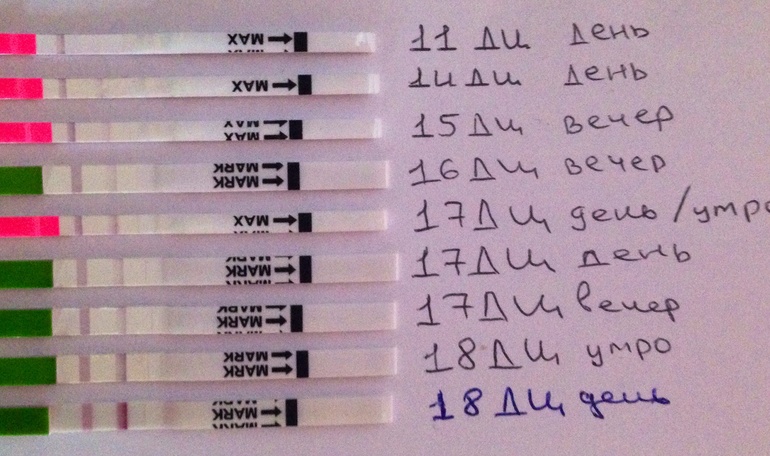 MAX 11 ДЦ день
MAX 14 ДЦ день
MAX 15 ДЦ вечер
MARK MARK 16 ДЦ вечер
MAX 17 ДЦ день/утро
MARK 17 ДЦ день
MARK 17 ДЦ вечер
MARK MARK 18 ДЦ утро
MARK 18 ДЦ день